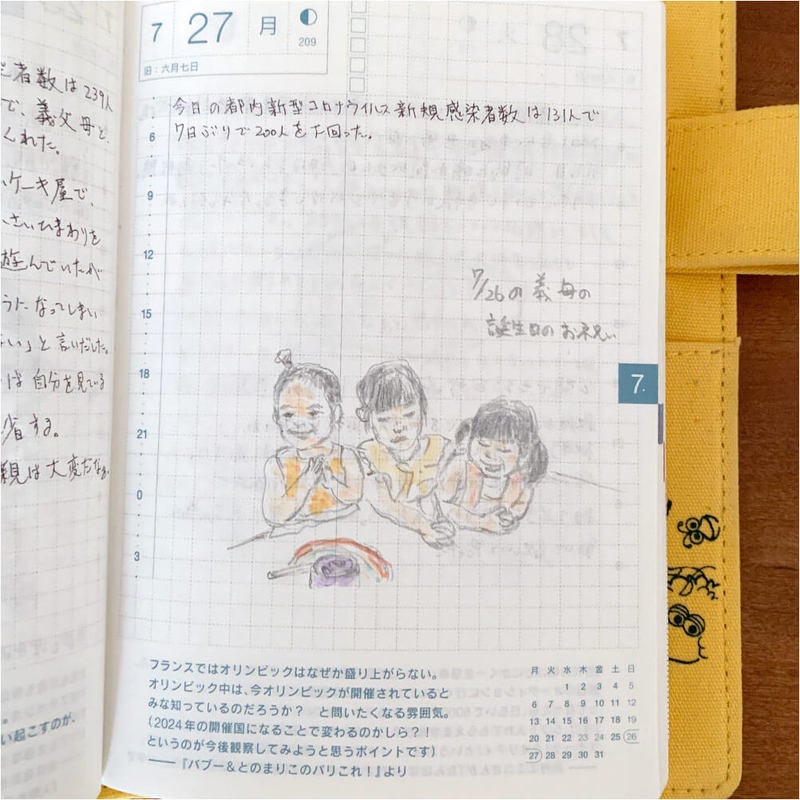 者数は239人
で、義父母と
くれた。
いケーキ屋で、
さいひまわりを
遊んでいたが
うになってしまい
い」と言いだした。
は自分を見ている
省する。
親は大変だなぁ
い起こすのが、
7
27
月
209
旧:六月七日
今日の都内新型コロナウイルス新規感染者数は131人で
7日ぶりで200人を下回った。
6
9
12
15
18
21
0
3
7/26の義母の
誕生日のお祝い
7.
フランスではオリンピックはなぜか盛り上がらない。
オリンピック中は、今オリンピックが開催されていると
みな知っているのだろうか? と問いたくなる雰囲気。
(2024年の開催国になることで変わるのかしら?!
というのが今後観察してみようと思うポイントです)
——『バブー&とのまりこのパリこれ!』より
月 火 水 木 金 土 日
1 2 3 4 5
6 7 8 9 10 11 12
13 14 15 16 17 18 19
20 21 22 23 24 25 26
27 28 29 30 31